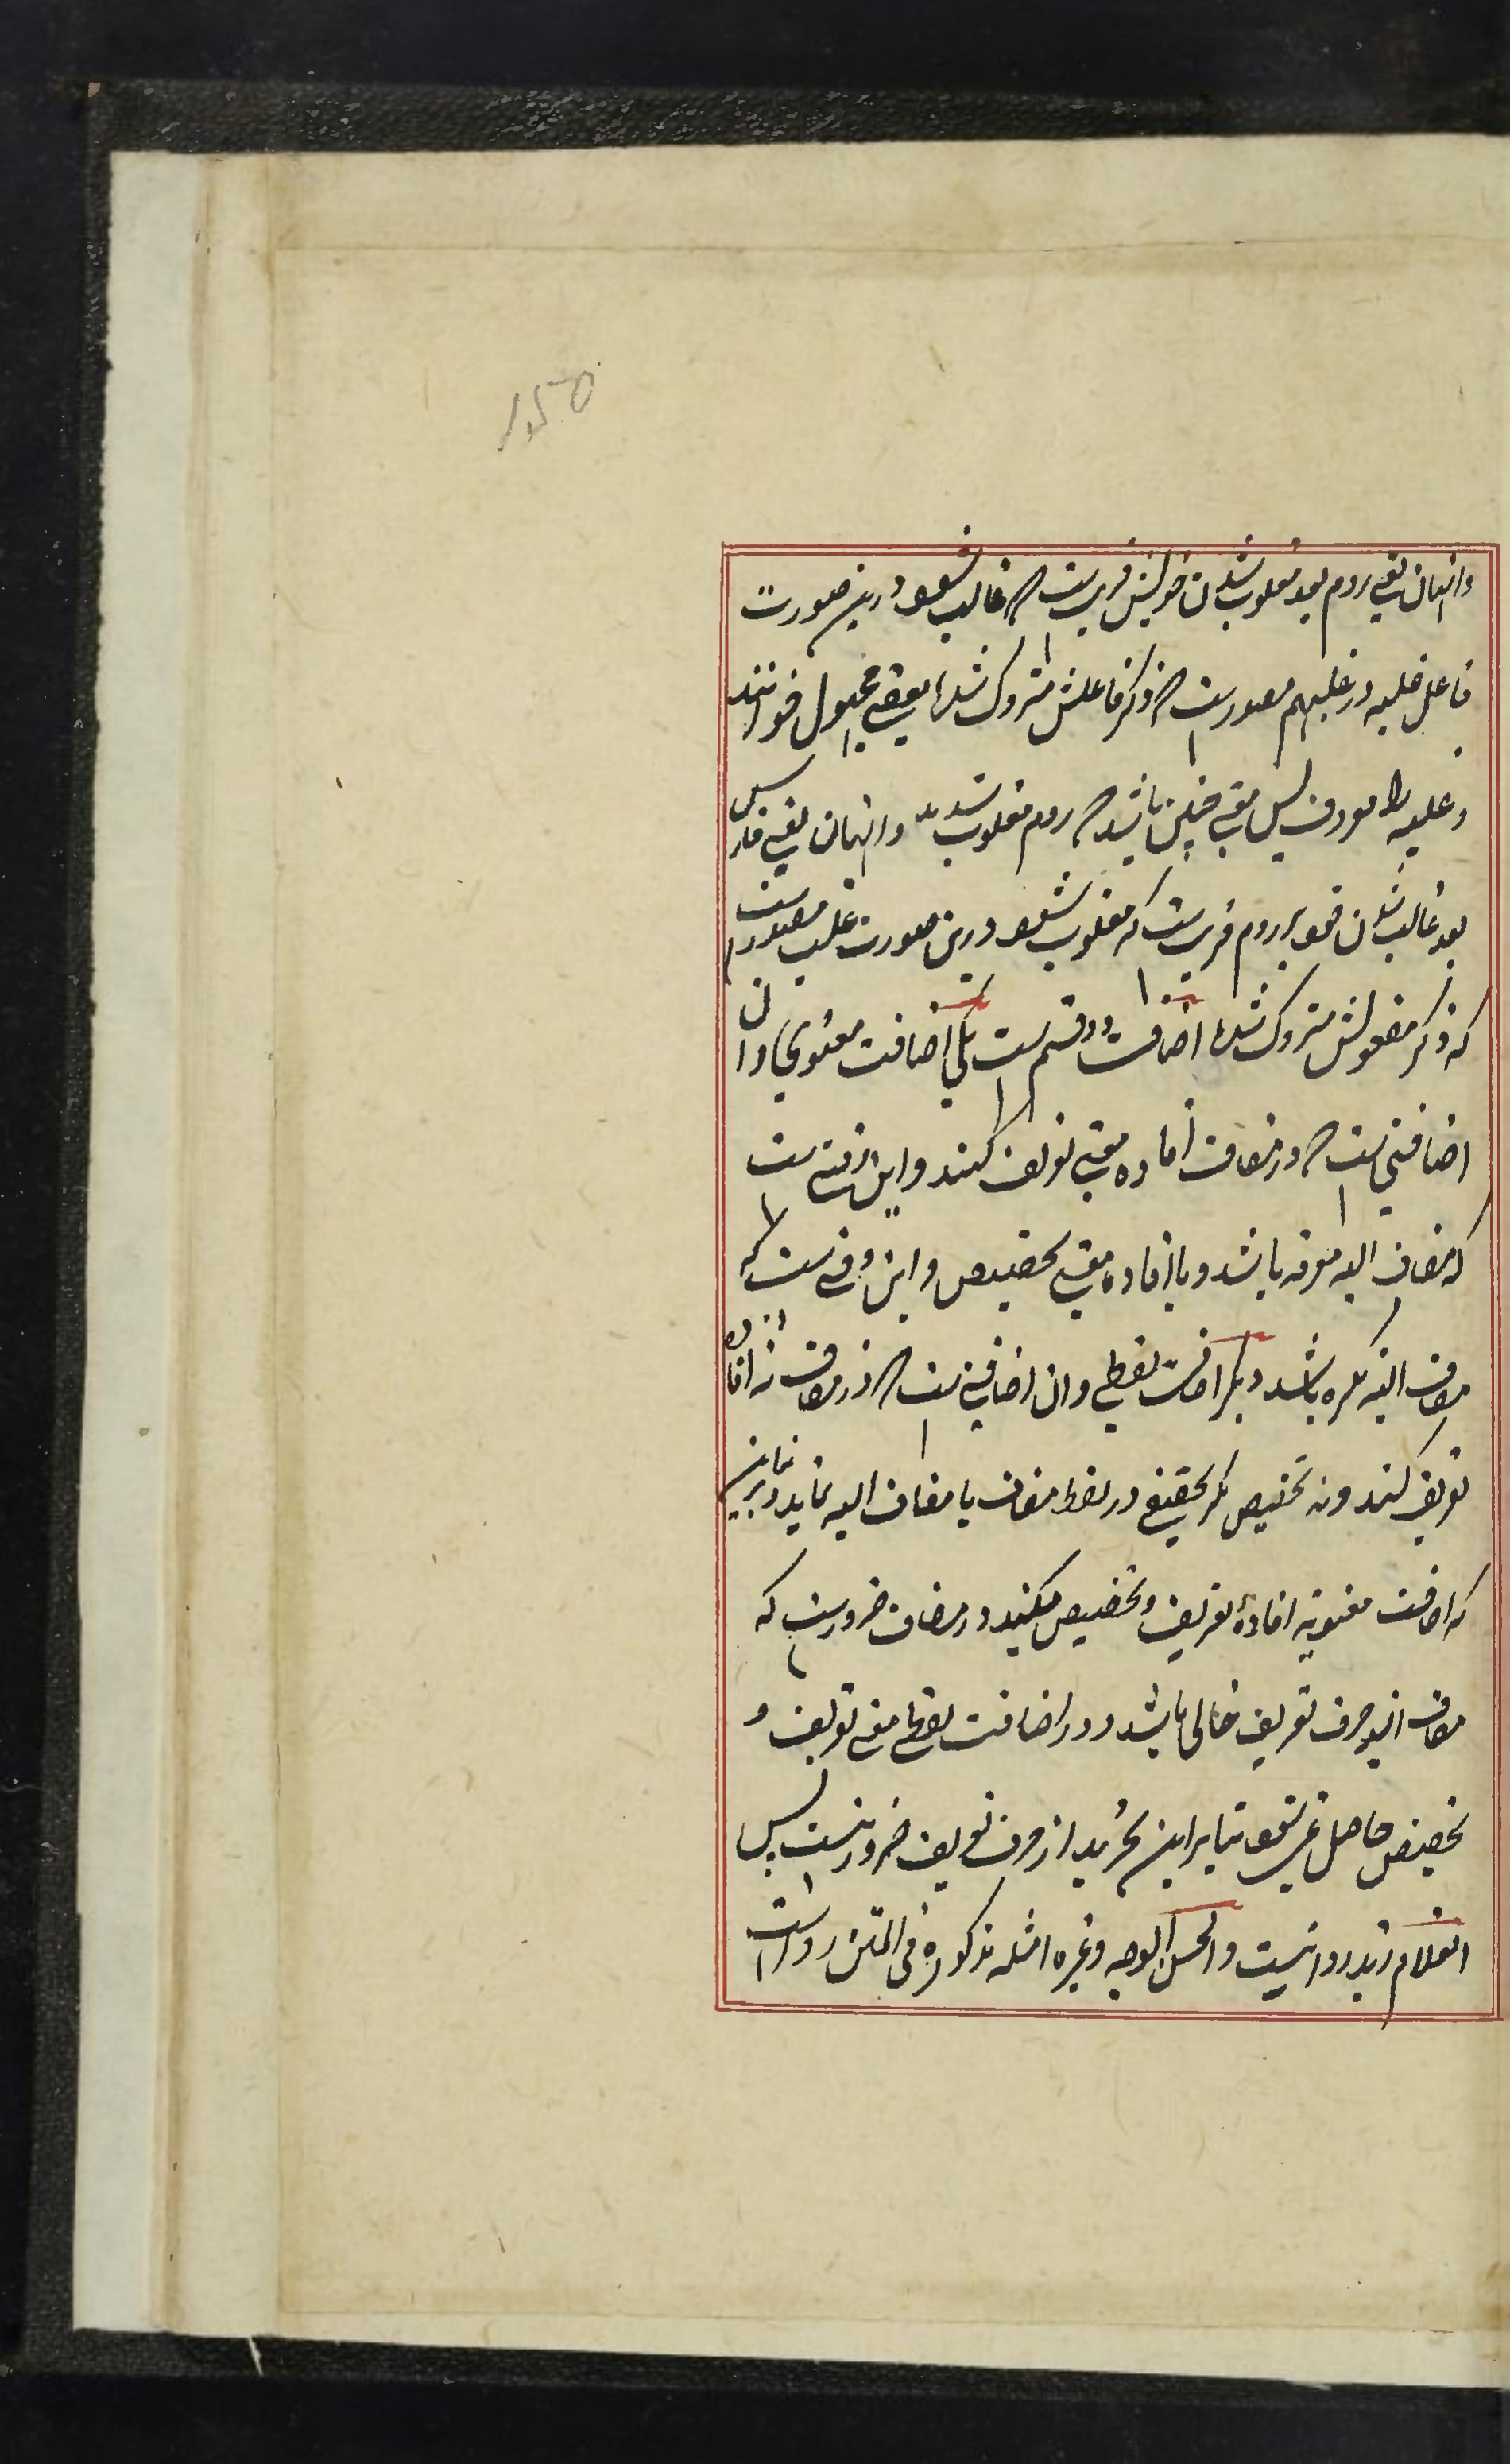 وایشان یعنی روم بعد مغلوب شدن خویش قریب ست که غالب شوند درین صورت
فاعل غلبه در غلبهم مصدرست که ذکر فاعلش متروک شده بعضی مجهول خوانند
و غلبه را معروف پس معنی چنین باشد که روم مغلوب شدند و ایشان یعنی فارس
بعد غالب شدن خود بر روم قریب ست که مغلوب شوند درین صورت غلب مصدرست
که ذکر مفعولش متروک شده اضافت دو قسم ست یکی اضافت معنوی و آن
اضافتی ست که در مضاف افاده معنی تعریف کنند و این وقتی ست
که مضاف الیه معرفه باشد و یا افاده معنی تخصیص و این وقتی ست که
مضاف الیه نکره باشد دیگر اضافت لفظی و آن اضافتی ست که در مضاف نه افاده
تعریف کنند و نه تخصیص مگر تخفیفی در لفظ مضاف یا مضاف الیه نماید و بنابرین
که اضافت معنویه افادهٔ تعریف و تخصیص میکنید در مضاف ضرورست که
مضاف از حرف تعریف خالی باشد و در اضافت لفظی معنی تعریف و
تخصیص حاصل نمی شود بنابراین تجرید از حرف تعریف ضرور نیست پس
الغلام زید روا نیست و الحسن الوجه و غیره امثله مذکوره فی المتن رواست